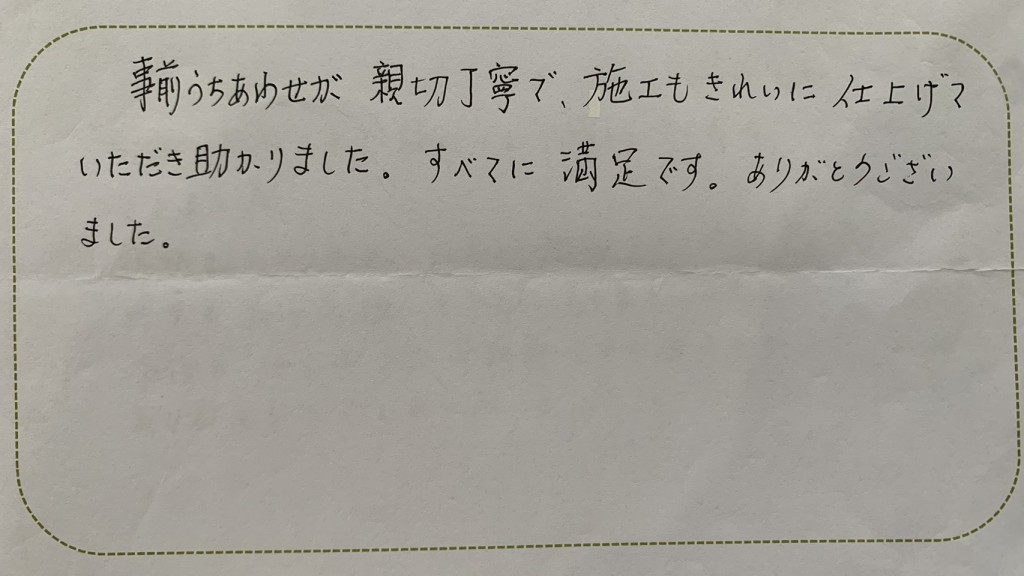 事前うちあわせが 親切丁寧で、施工もきれいに 仕上げて
いただき助かりました。すべてに 満足です。ありがとうござい
ました。